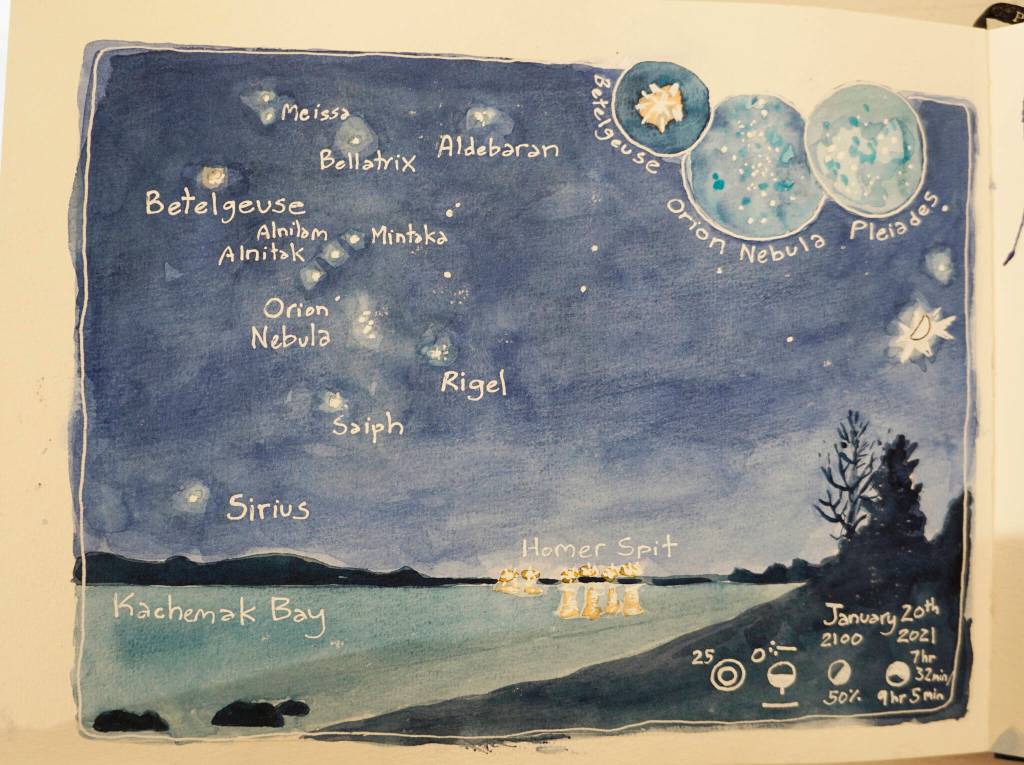 Meissa
Bellatrix
Aldebaran
Betelgeuse
Alnilam
Alnitak
Mintaka
Orion
Nebula
Rigel
Saiph
Sirius
Betelgeuse
Orion Nebula
Pleiades
Homer Spit
Kachemak Bay
January 20th
2100 2021
25
0
50%
7hr
32min
9hr 5min